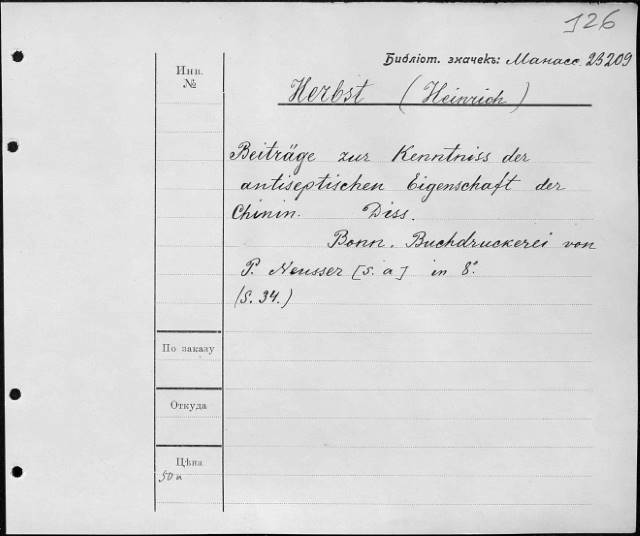 126
Библіот. значекъ: Манасс. 23209
Инв.
№
Herbst (Heinrich)
Beiträge zur Kenntniss der
antiseptischen Eigenschaft der
Chinin. Diss.
Bonn. Buchdruckerei von
P. Neusser [s. a] in 8º
(S. 34.)
По заказу
Откуда
Цѣна
50 к